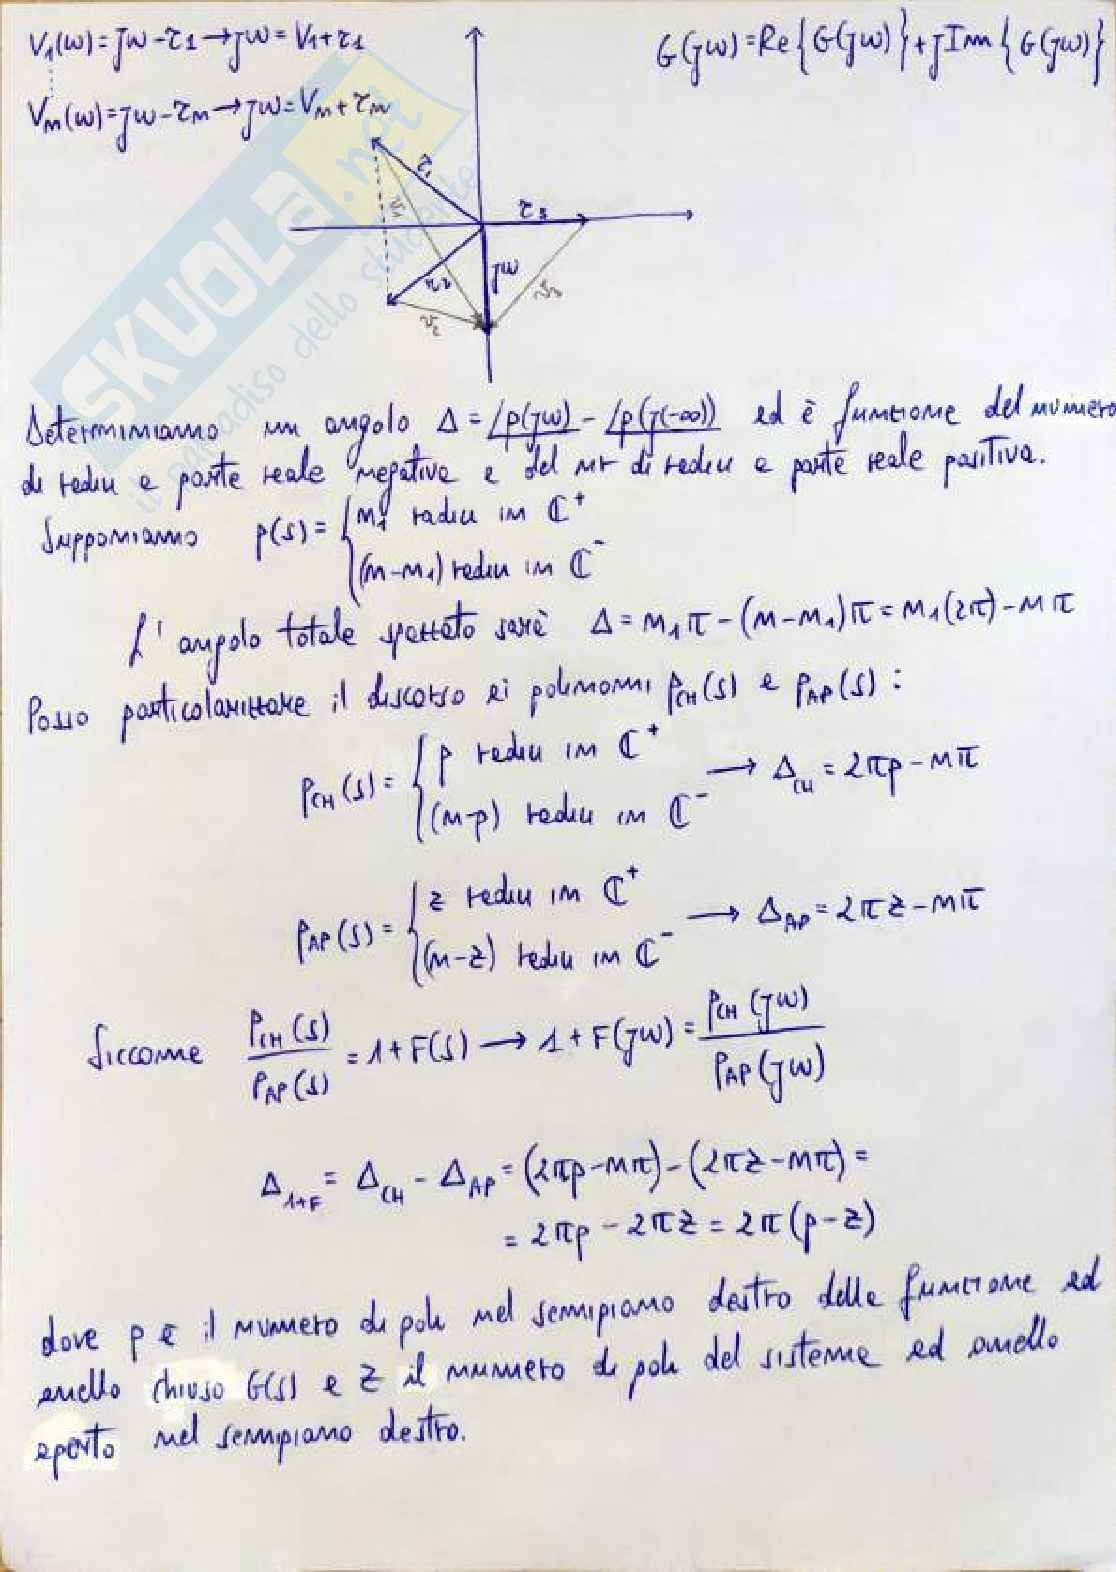 V₁(ω)=jω-τ1→jω=V₁+τ1
G(jω)=Re{G(jω)}+jIm{G(jω)}
Vm(ω)=jω-τm→jω=Vm+τm
τ1
τ3
v1
τ2
jω
v3
v2
SKUOLA.net
il paradiso dello studente
Determiniamo un angolo Δ=∠p(jω)-∠p(j(-∞)) ed è funzione del numero
di radici a parte reale negativa e del nr di radici a parte reale positiva.
Supponiamo p(s)={m1 radici im ℂ⁺
(m-m1) radici im ℂ⁻
L'angolo totale spazzato sarà Δ=m1π-(m-m1)π=m1(2π)-mπ
Posso particolarizzare il discorso ai polinomi pCH(s) e pAP(s):
pCH(s)={p radici im ℂ⁺
(m-p) radici im ℂ⁻ → ΔCH=2πp-mπ
pAP(s)={z radici im ℂ⁺
(m-z) radici im ℂ⁻ → ΔAP=2πz-mπ
Siccome pCH(s)/pAP(s)=1+F(s)→1+F(jω)=pCH(jω)/pAP(jω)
Δ1+F=ΔCH-ΔAP=(2πp-mπ)-(2πz-mπ)=
=2πp-2πz=2π(p-z)
dove p è il numero di poli nel semipiano destro della funzione ad
anello chiuso G(s) e z il numero di poli del sistema ad anello
aperto nel semipiano destro.